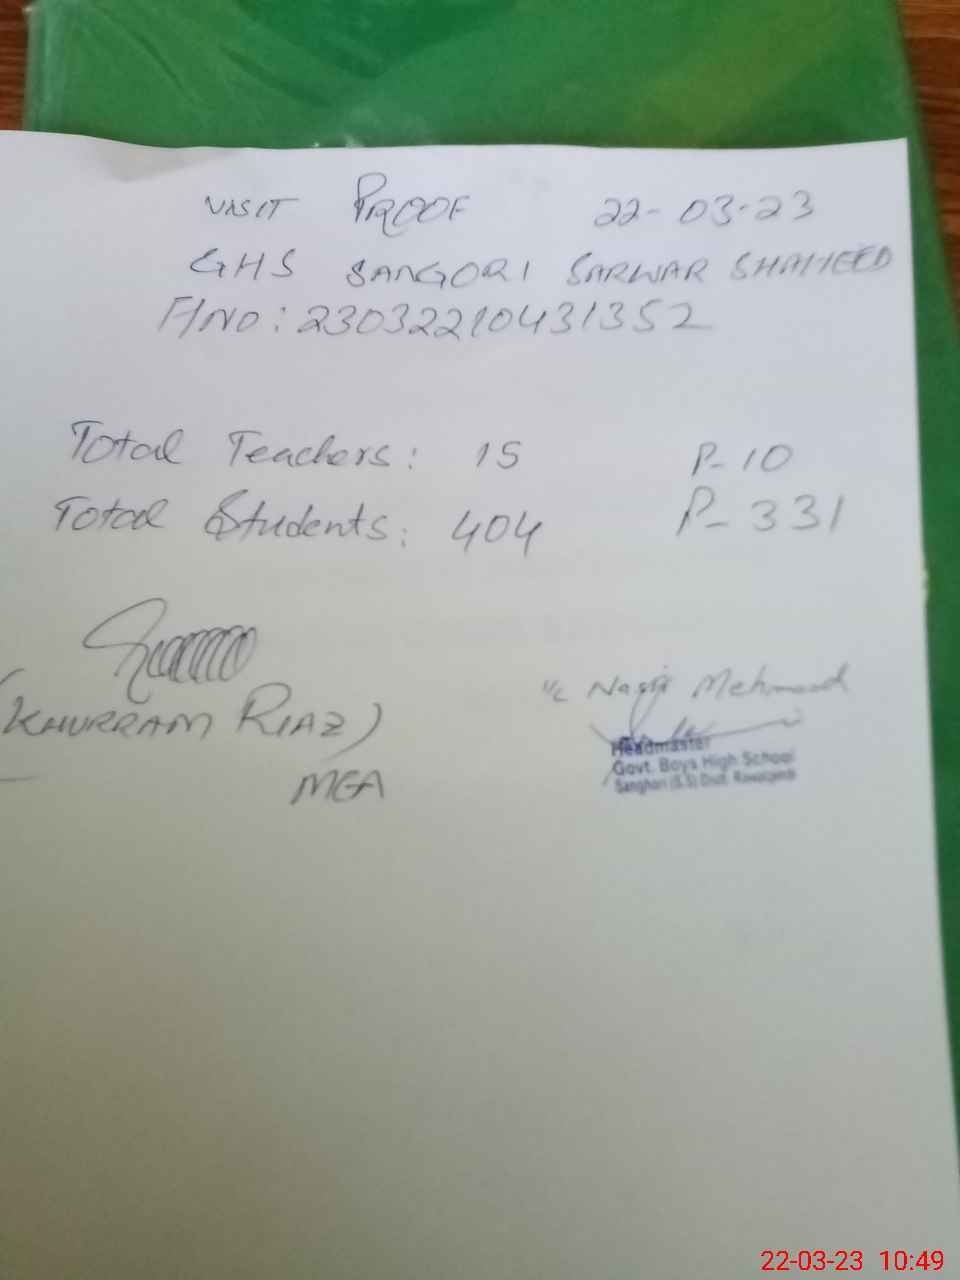 VISIT PROOF 22-03-23
GHS SANGORI SARWAR SHAHEED
F/NO: 23032210431352
Total Teachers: 15 P- 10
Total Students: 404 P- 331
(KHURRAM RIAZ)
MEA
I/C Mehmood
Headmaster
Govt. Boys High School
Sanghori (S.S) Distt. Rawalpindi
22-03-23 10:49